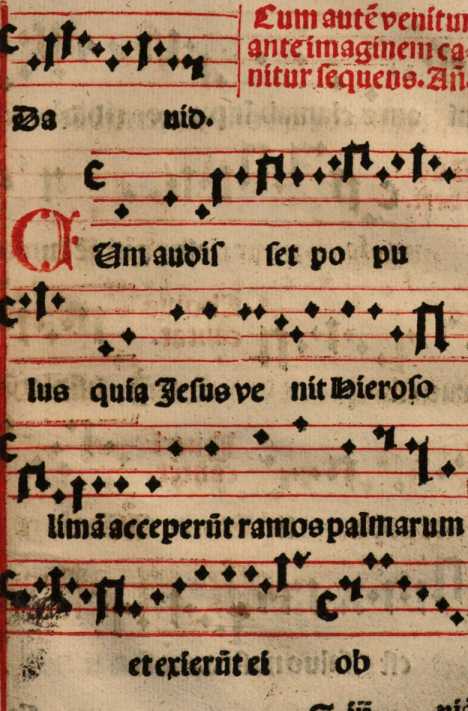 Cum autē venitur
ante imaginem ca-
nitur sequens. Añ.
Da uid.
CUm audis set po pu
lus quia Jesus ve nit Hieroso
limā acceperūt ramos palmarum
et exierūt ei ob